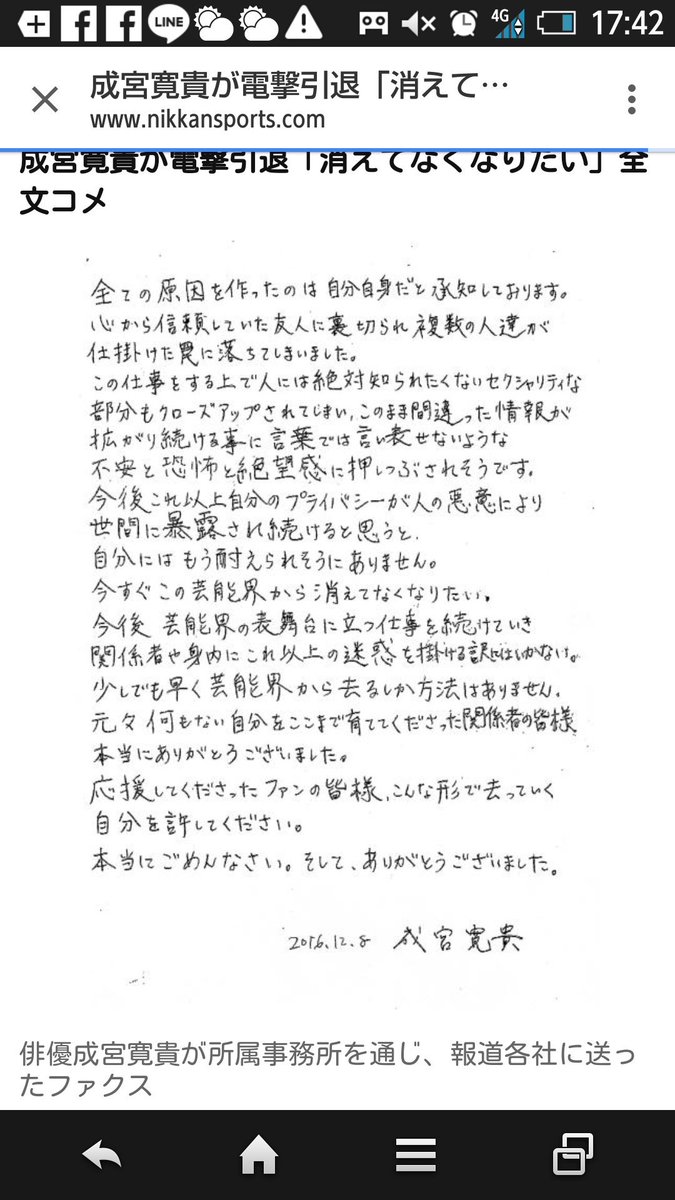 LINE
4G
17:42
成宮寛貴が電撃引退「消えて…
www.nikkansports.com
成宮寛貴が電撃引退「消えてなくなりたい」全
文コメ
全ての原因を作ったのは自分自身だと承知しております。
心から信頼していた友人に裏切られ複数の人達が
仕掛けた罠に落ちてしまいました。
この仕事をする上で人には絶対知られたくないセクシャリティな
部分もクローズアップされてしまい、このまま間違った情報が
拡がり続ける事に言葉では言い表せないような
不安と恐怖と絶望感に押しつぶされそうです。
今後これ以上自分のプライバシーが人の悪意により
世間に暴露され続けると思うと、
自分にはもう耐えられそうにありません。
今すぐこの芸能界から消えてなくなりたい。
今後芸能界の表舞台に立つ仕事を続けていき
関係者や身内にこれ以上の迷惑を掛ける訳にはいかない。
少しでも早く芸能界から去るしか方法はありません。
元々何もない自分をここまで育ててくださった関係者の皆様
本当にありがとうございました。
応援してくださったファンの皆様、こんな形で去っていく
自分を許してください。
本当にごめんなさい。そして、ありがとうございました。
2016.12.8 成宮寛貴
俳優成宮寛貴が所属事務所を通じ、報道各社に送っ
たファクス